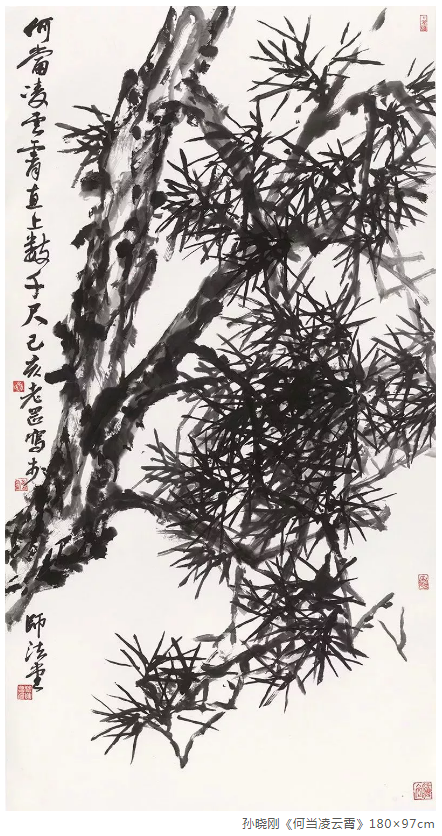 何當凌雲霄直上數千尺己亥老呂寫於
師法堂
孙晓刚《何当凌云霄》180×97cm